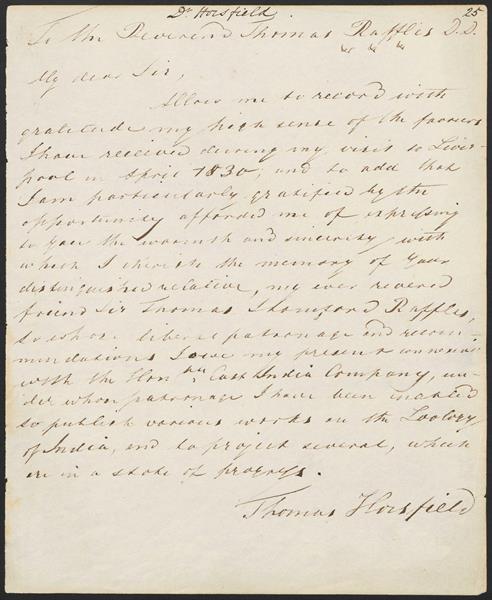 Dr Horsfield.
25
To the Reverend Thomas Raffles D.D.
My dear Sir,
Allow me to record with
gratitude my high sense of the favours
I have received during my visit to Liver-
pool in April 1830; and to add that
I am particularly gratified by the
opportunity afforded me of expressing
to you the warmth and sincerity with
which I cherish the memory of your
distinguished relative, my ever revered
friend Sir Thomas Stamford Raffles,
to whose liberal patronage and recom-
mendations I owe my present
with the Honble East India Company, un-
der whose patronage I have been enabled
to publish various works on the Zoology
of India, and to project several, which
are in a state of progress.
Thomas Horsfield